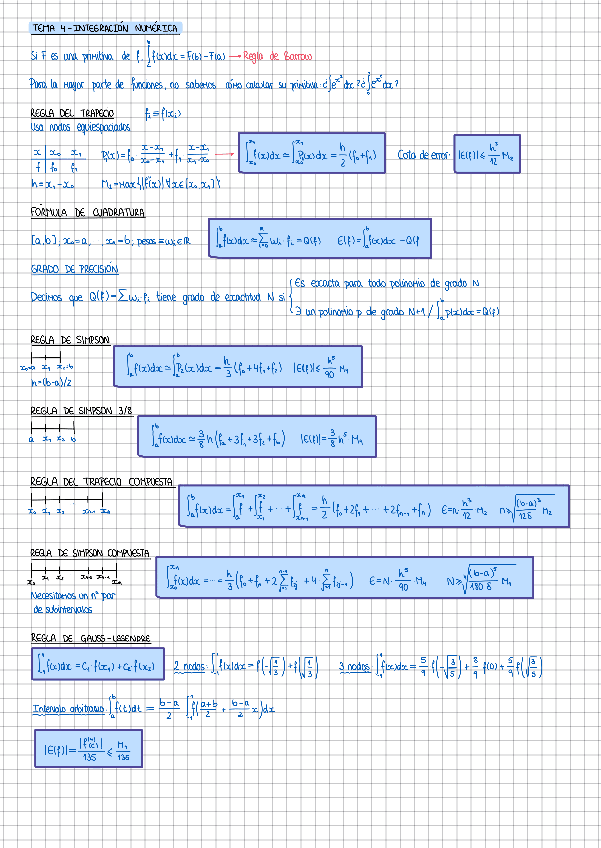 TEMA 4 - INTEGRACIÓN NUMÉRICA
Si F es una primitiva de f, ∫_a^b f(x)dx = F(b) - F(a) → Regla de Barrow
Para la mayor parte de funciones, no sabemos cómo calcular su primitiva. ¿∫e^{x²}dx? ¿∫_0^1 e^{x²}dx?
REGLA DEL TRAPECIO f_i ≡ f(x_i)
Usa nodos equiespaciados
x | x_0 x_1
f | f_0 f_1
P_1(x) = f_0 (x-x_1)/(x_0-x_1) + f_1 (x-x_0)/(x_1-x_0) → ∫_{x_0}^{x_1} f(x)dx ≃ ∫_{x_0}^{x_1} P_1(x)dx = h/2 (f_0+f_1) Cota de error: |E(f)| ≤ h³/12 M_2
h = x_1 - x_0 M_2 = max{|f''(x)| ∀x∈[x_0,x_1]}
FÓRMULA DE CUADRATURA
[a,b], x_0=a, , x_n=b; pesos = ω_i ∈ ℝ ∫_a^b f(x)dx ≈ ∑_{i=0}^n ω_i · f_i = Q(f) E(f) = ∫_a^b f(x)dx - Q(f)
GRADO DE PRECISIÓN
Decimos que Q(f) = ∑ω_i · f_i tiene grado de exactitud N si {
Es exacta para todo polinomio de grado N
∃ un polinomio p de grado N+1 / ∫_a^b p(x)dx = Q(f)
REGLA DE SIMPSON
x_0=a x_1 x_2=b
h = (b-a)/2
∫_a^b f(x)dx ≃ ∫_a^b P_2(x)dx = h/3 (f_0+4f_1+f_2) |E(f)| ≤ h⁵/90 M_4
REGLA DE SIMPSON 3/8
a x_1 x_2 b
∫_a^b f(x)dx ≃ 3/8 h (f_a+3f_1+3f_2+f_b) |E(f)| = 3/8 h⁵ M_4
REGLA DEL TRAPECIO COMPUESTA
x_0 x_1 x_2 x_{n-1} x_n
∫_a^b f(x)dx = ∫_{x_0}^{x_1} f + ∫_{x_1}^{x_2} f + ··· + ∫_{x_{n-1}}^{x_n} f = h/2 (f_0+2f_1+ ··· +2f_{n-1}+f_n) E = n· h³/12 M_2 n ≥ √((b-a)³/12ε M_2)
REGLA DE SIMPSON COMPUESTA
∫_{x_0}^{x_n} f(x)dx = ··· = h/3 (f_0+f_n+2∑f_{2j}+4∑f_{2j-1}) E = N· h⁵/90 M_4 N ≥ ⁴√((b-a)⁵/180 ε M_4)
Necesitamos un nº par
de subintervalos
REGLA DE GAUSS-LEGENDRE
∫_{-1}^1 f(x)dx = C_1·f(x_1) + C_2·f(x_2) 2 nodos: ∫_{-1}^1 f(x)dx = f(-√(1/3)) + f(√(1/3)) 3 nodos: ∫_{-1}^1 f(x)dx = 5/9 f(-√(3/5)) + 8/9 f(0) + 5/9 f(√(3/5))
Intervalo arbitrario: ∫_a^b f(t)dt = (b-a)/2 ∫_{-1}^1 f((a+b)/2 + (b-a)/2 x)dx
|E(f)| = |f⁽⁴⁾(c)|/135 ≤ M_4/135